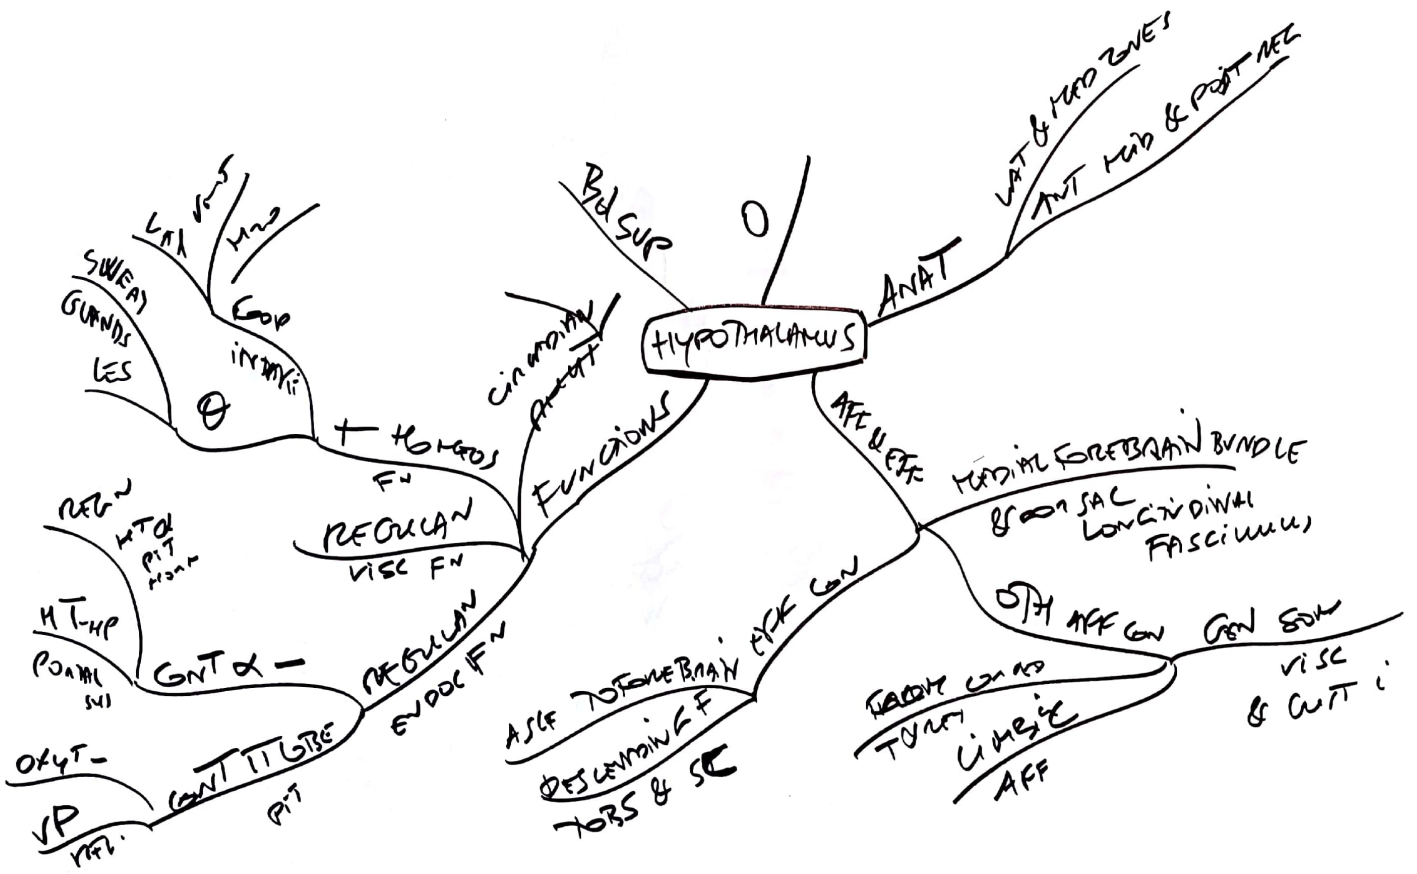 HYPOTHALAMUS
Bld SUP
O
ANAT
LAT & MED ZONES
ANT MID & POST REG
AFF & EFF
MEDIAL FOREBRAIN BUNDLE
& DORSAL
LONGITUDINAL
FASCICULUS
OTH AFF CON
GEN SOM
VISC
& GUST i
LIMBIC
AFF
EFF CON
ASCF TO FOREBRAIN
DESCENDING F
TO BS & SC
FUNCTIONS
CIRCADIAN
RHYT
+ HOMEOS
FN
FOOD
INTAKE
H2O
θ
SWEAT
GLANDS
REGULAN
VISC FN
REGULAN
ENDOC FN
CONT α -
REGN
HT α
PIT
HORM
HT-HP
PORTAL
SYS
CONT Π LOBE
PIT
OXYT -
VP